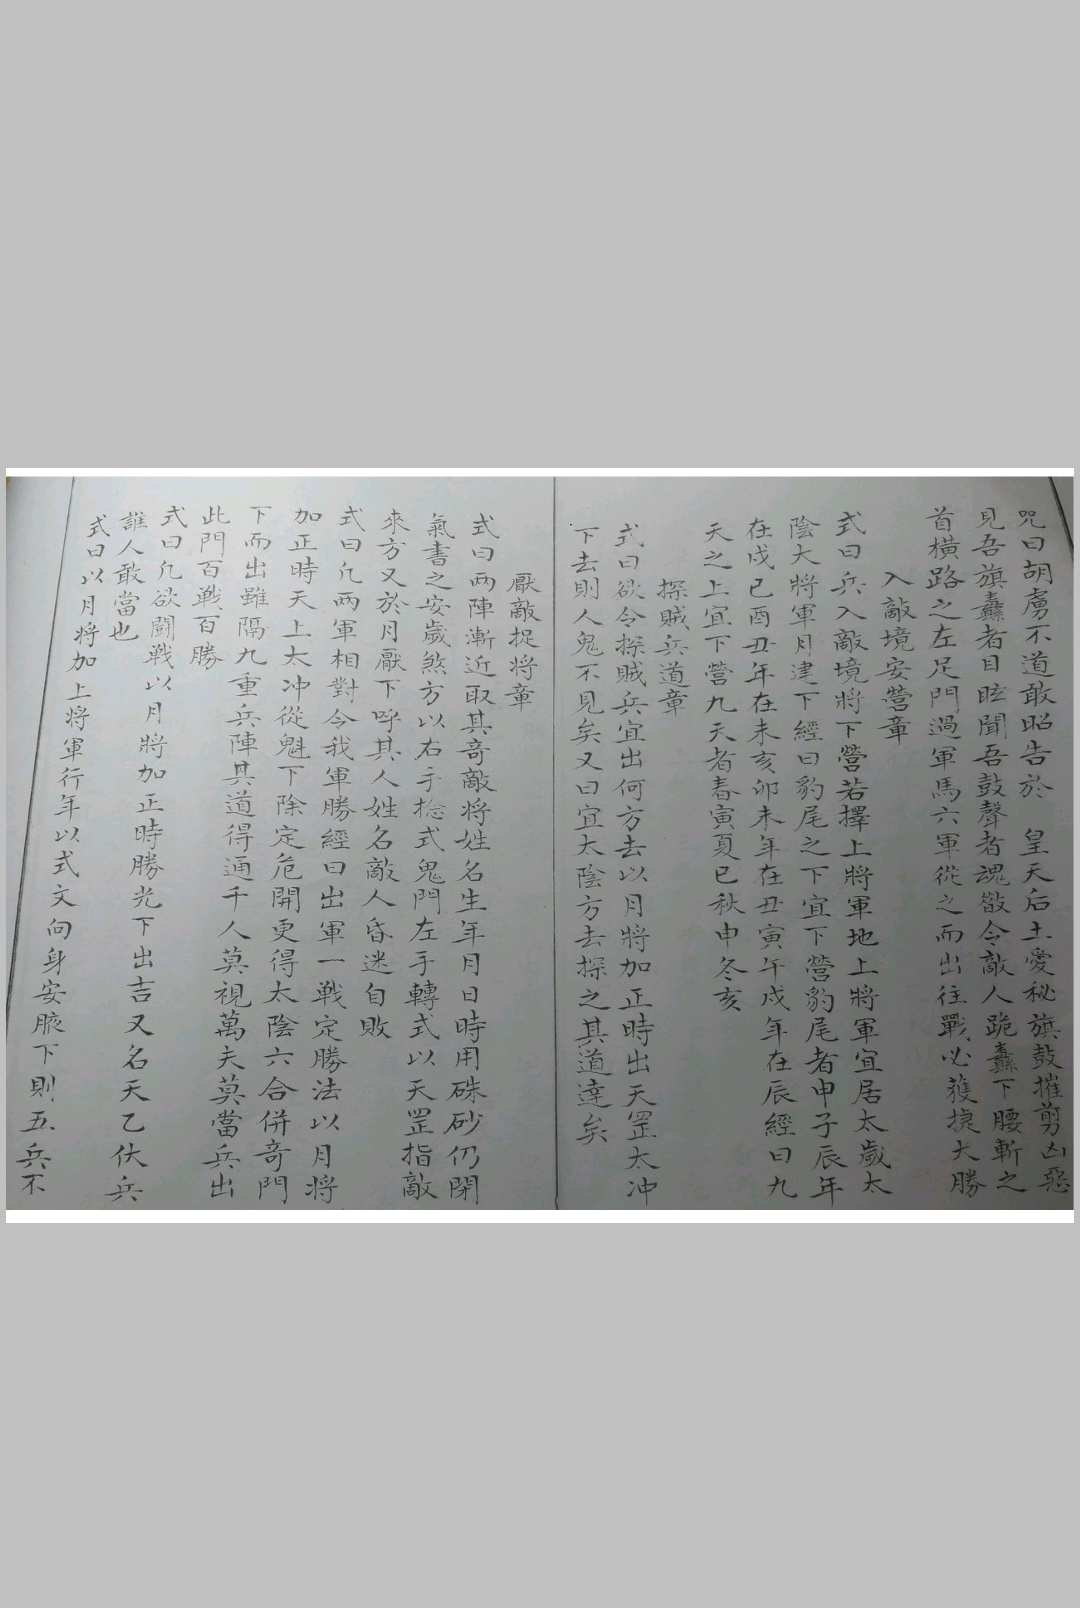 咒曰胡虜不道敢昭告於　皇天后土愛秘旗鼓摧剪凶惡
見吾旗纛者目眩聞吾鼓聲者魂散令敵人跪纛下腰斬之
首橫路之左足門過軍馬六軍從之而出往戰必獲捷大勝
入敵境安營章
式曰兵入敵境將下營若擇上將軍地上將軍宜居太歲太
陰大將軍月建下經曰豹尾之下宜下營豹尾者申子辰年
在戌巳酉丑年在未亥卯未年在丑寅午戌年在辰經曰九
天之上宜下營九天者春寅夏巳秋申冬亥
探賊兵道章
式曰欲令探賊兵宜出何方去以月將加正時出天罡太冲
下去則人鬼不見矣又曰宜太陰方去探之其道達矣
厭敵捉將章
式曰两陣漸近取其竒敵將姓名生年月日時用硃砂仍閉
氣書之安歲煞方以右手捻式鬼門左手轉式以天罡指敵
來方又於月厭下呼其人姓名敵人昏迷自敗
式曰凢两軍相對今我軍勝經曰出軍一戰定勝法以月將
加正時天上太冲從魁下除定危開更得太陰六合併竒門
下而出雖隔九重兵陣其道得通千人莫視萬夫莫當兵出
此門百戰百勝
式曰凢欲鬬戰以月將加正時勝光下出吉又名天乙伏兵
誰人敢當也
式曰以月將加上將軍行年以式文向身安腋下則五兵不